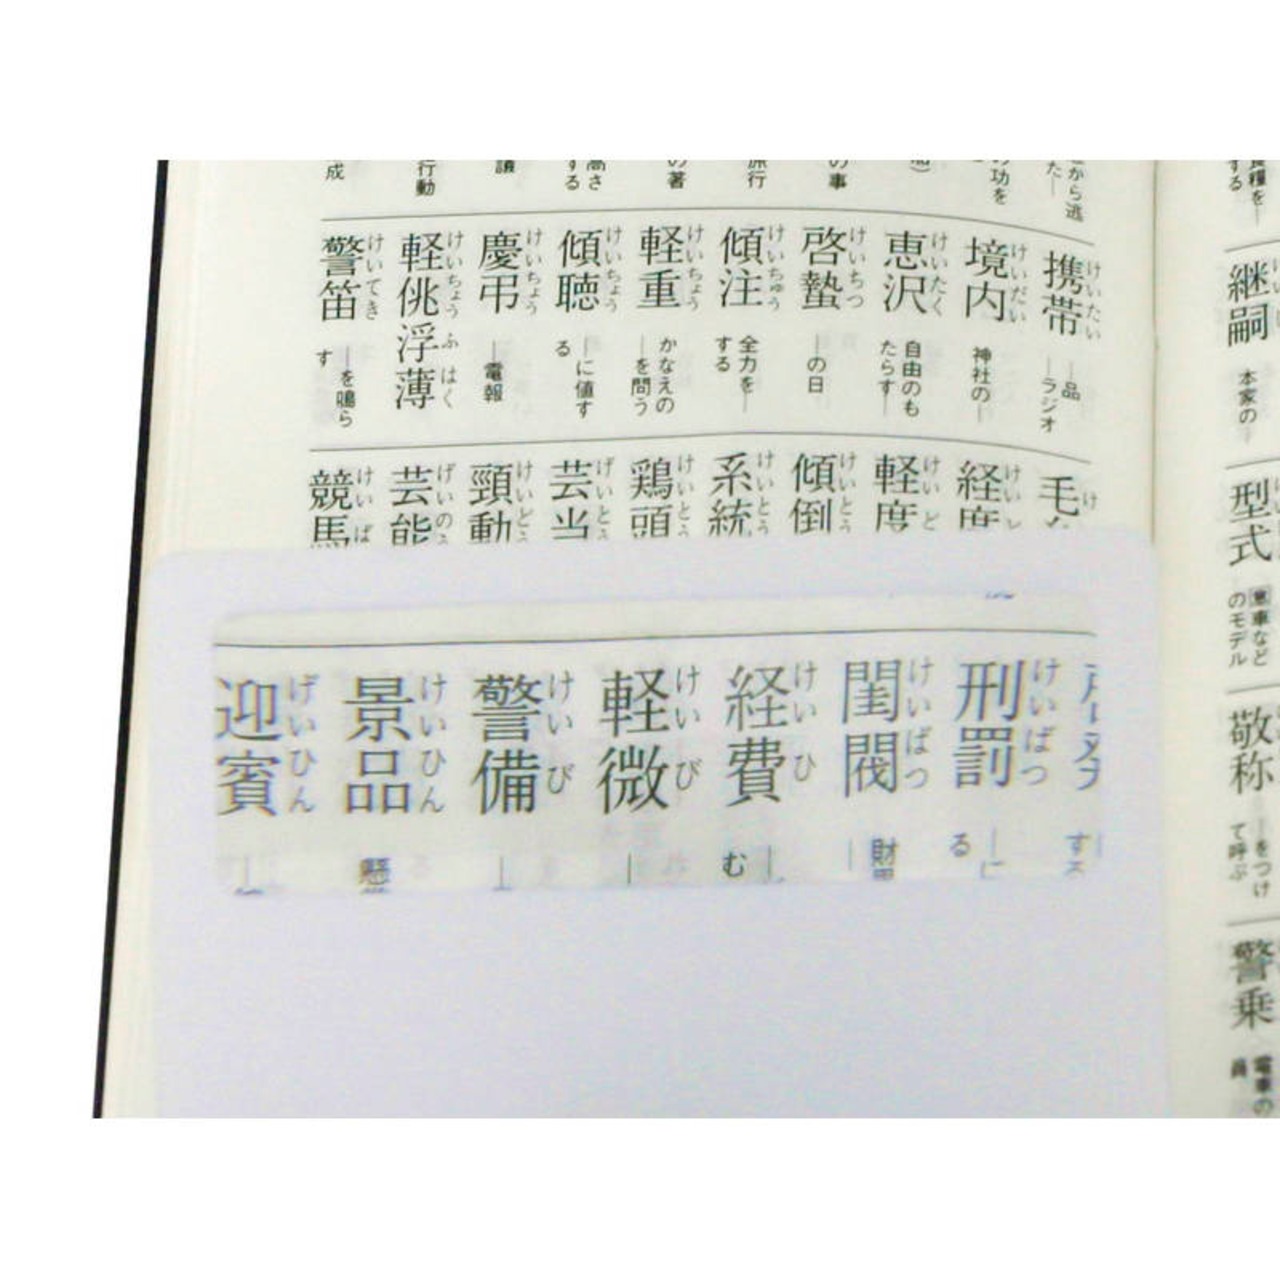 良糧を―
する
継嗣
本家の―
型式
自動車など
のモデル
敬称
―をつけ
て呼ぶ
警乗
電車の
員
から逃
た―
の功を
の事
旅行
の著
高さ
する
議
行動
成
携帯 けいたい
―品
―ラジオ
境内 けいだい
神社の―
恵沢 けいたく
自由のも
たらす―
啓蟄 けいちつ
―の日
傾注 けいちゅう
全力を―
する
軽重 けいちょう
かなえの
―を問う
傾聴 けいちょう
―に値す
る
慶弔 けいちょう
―電報
軽佻浮薄 けいちょうふはく
警笛 けいてき
―を鳴ら
す
毛 け
経度 けいど
軽度 けいど
傾倒 けいとう
系統 けいとう
鶏頭 けいとう
芸当 げいとう
頸動 けいどう
芸能 げいのう
競馬 けいば
する
刑罰 けいばつ
る
閨閥 けいばつ
―財界
経費 けいひ
む
軽微 けいび
警備 けいび
景品 けいひん
懸賞
迎賓 げいひん